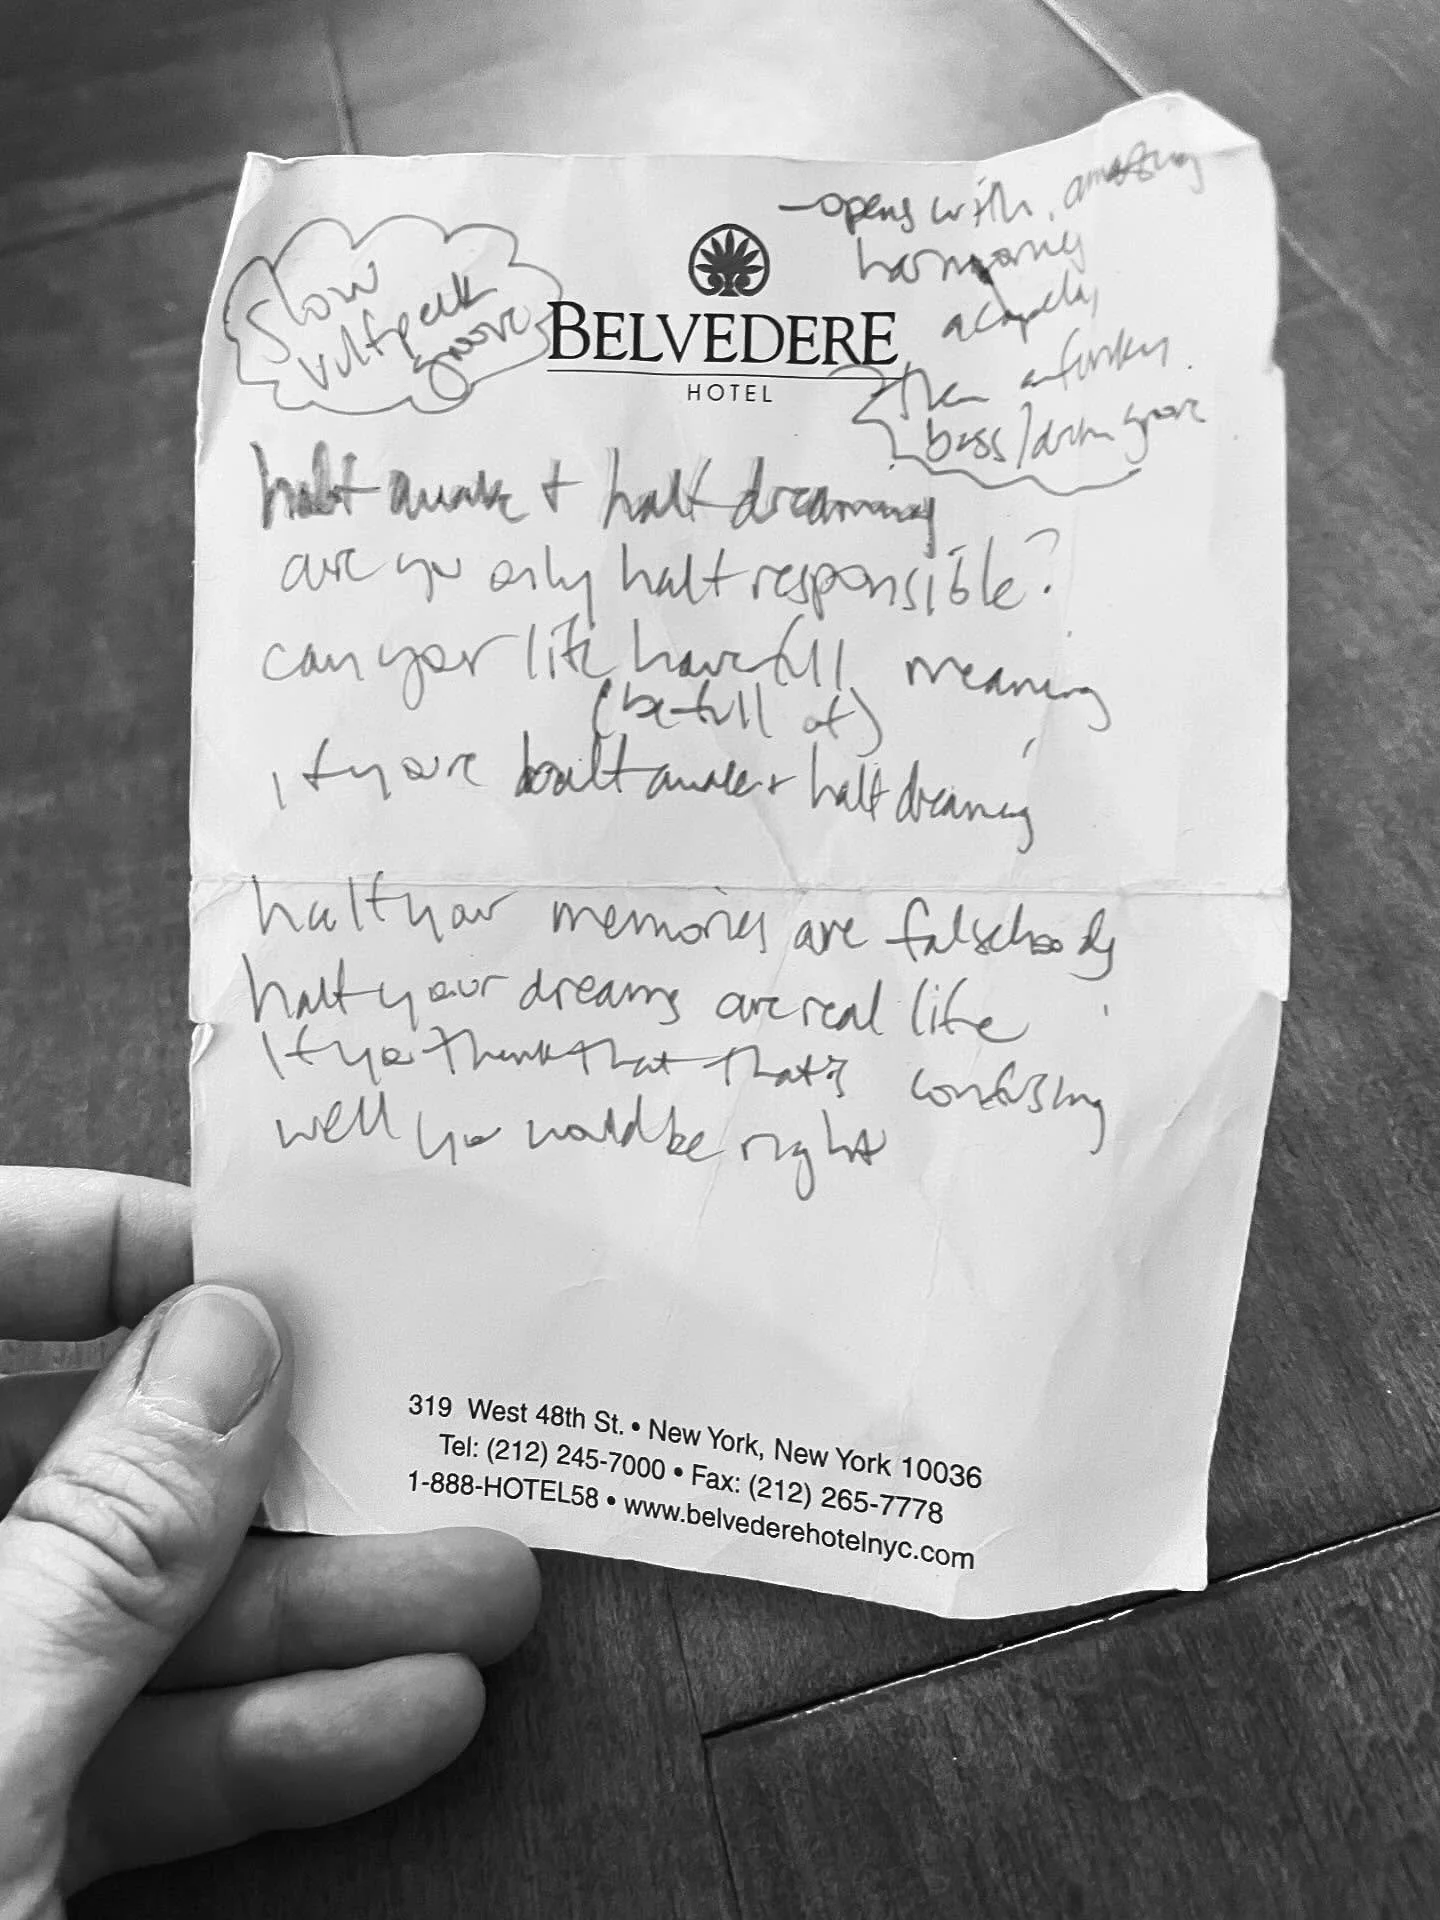 Slow
vulfpeck
groove
- opens with amazing
harmony
acapela,
then a funky
bass/drum groove
BELVEDERE
HOTEL
half awake + half dreaming
are you only half responsible?
can your life have full meaning
(be full of)
if you're half awake + half dreaming
half your memories are falsehoods
half your dreams are real life
If you think that that's confusing
well you would be right
319 West 48th St. • New York, New York 10036
Tel: (212) 245-7000 • Fax: (212) 265-7778
1-888-HOTEL58 • www.belvederehotelnyc.com